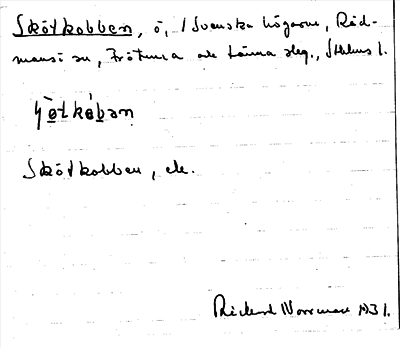 Skötkobben, ö, i Svenska högarne, Råd-
mansö sn, Frötuna och Länna skg., Sthlms l.
Skötkobben, ek.
Rickard Norrman 1931.